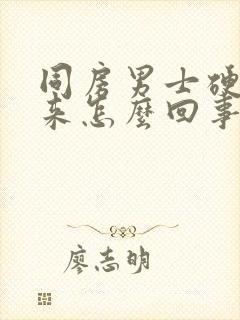 同房男士硬
来怎麼回事
廖志明